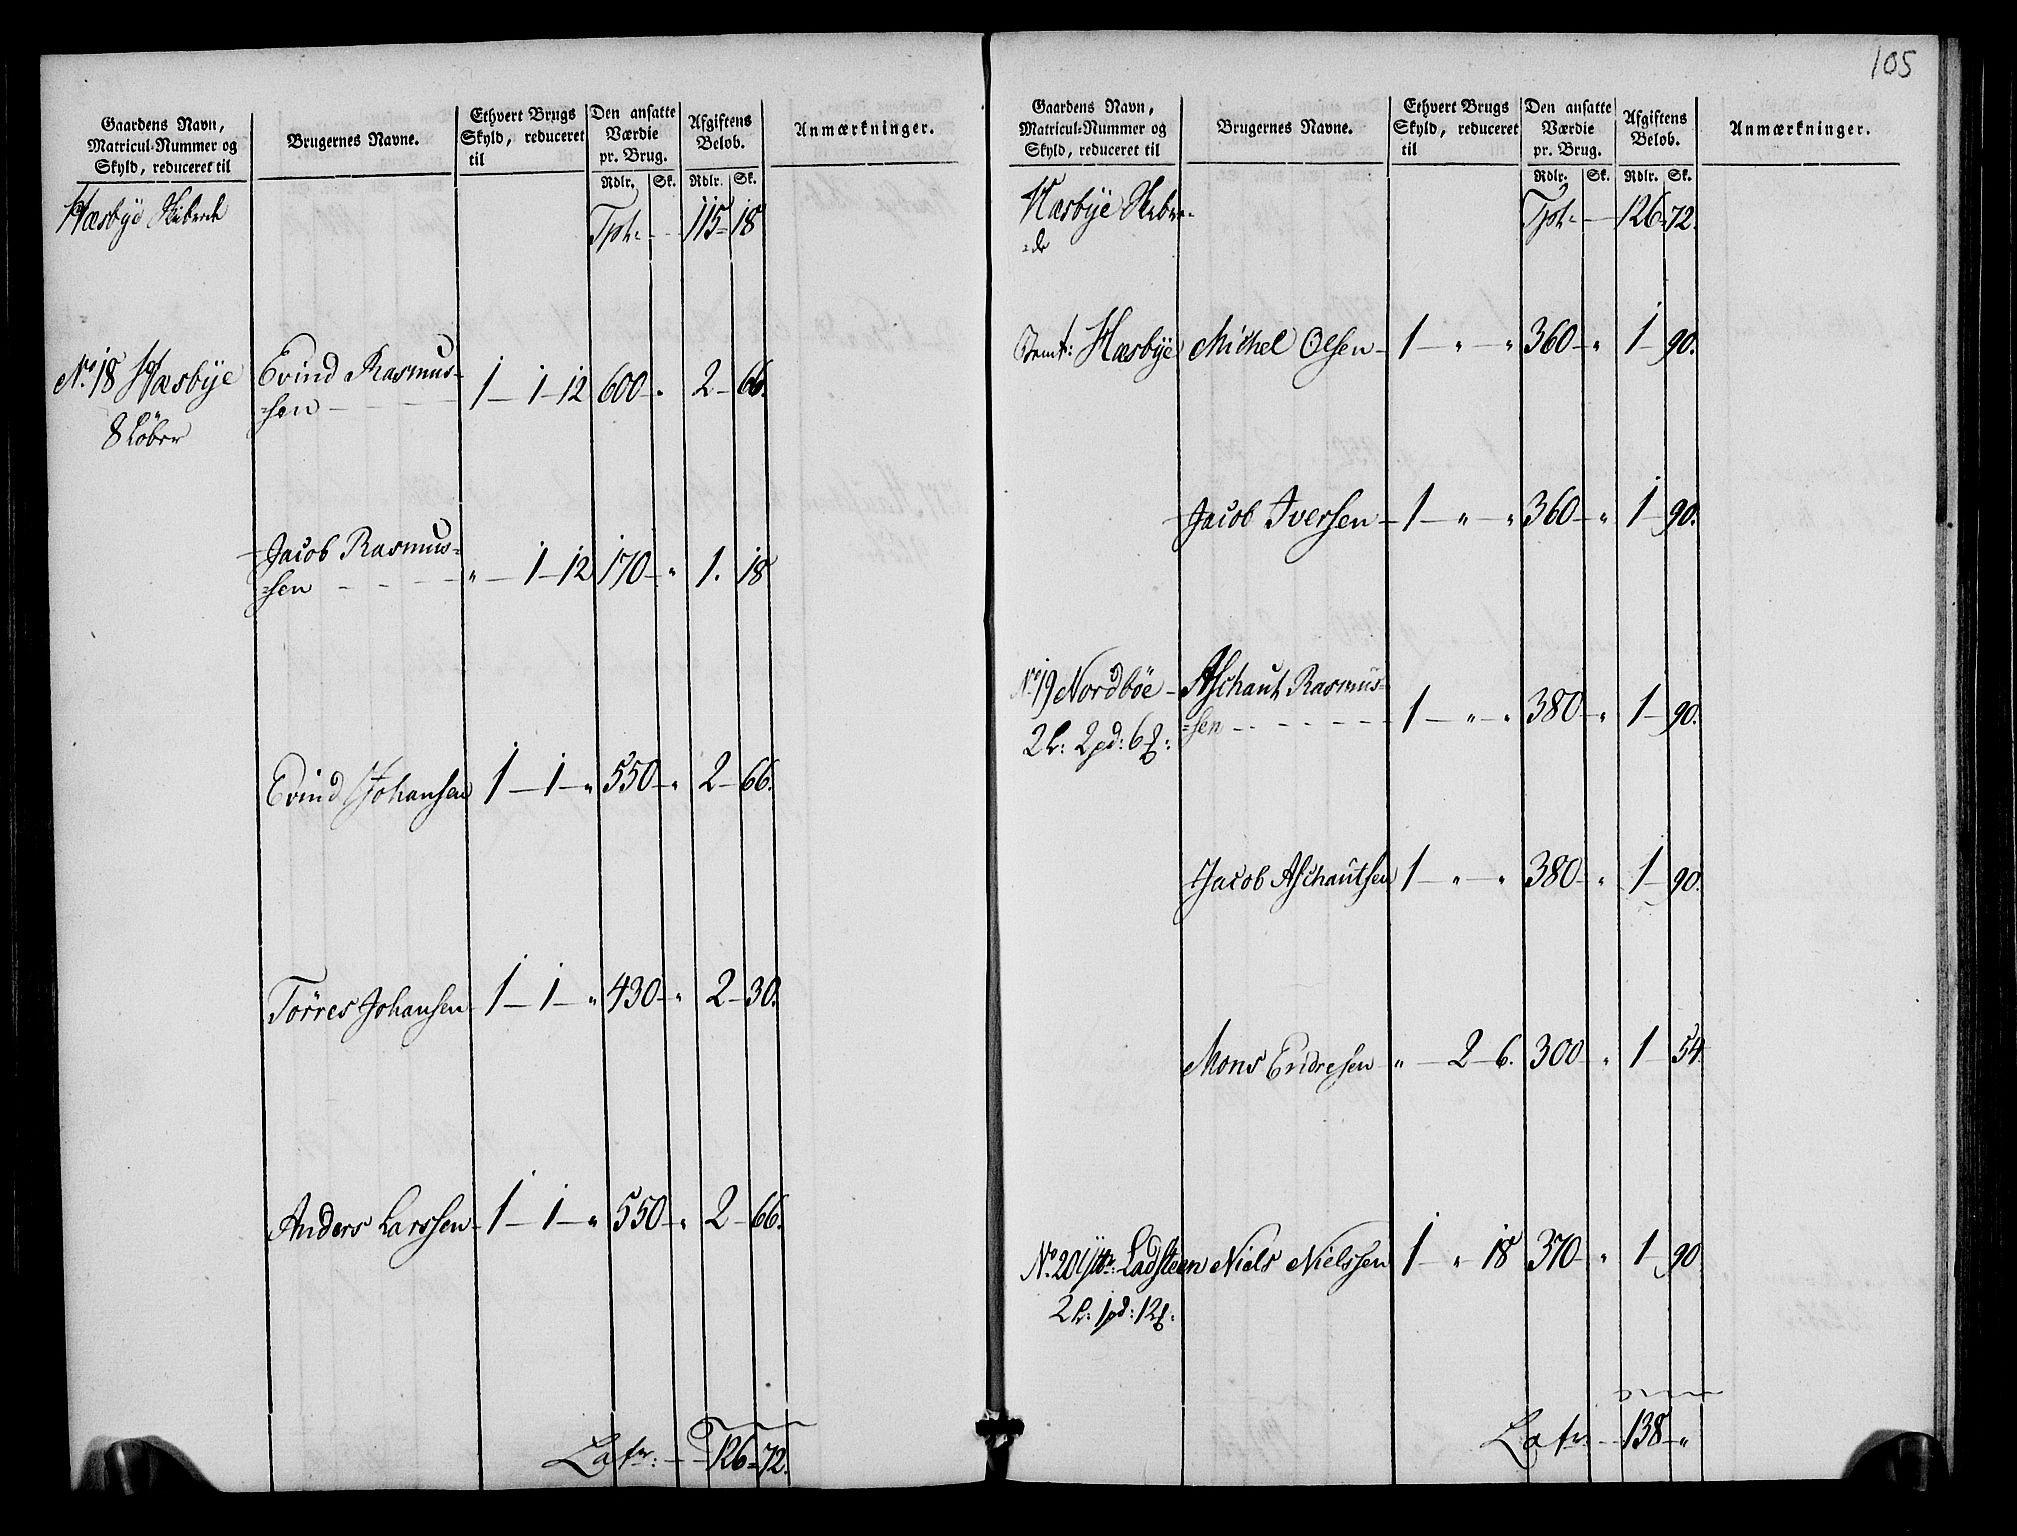 105
Gaardens Navn, Matricul-Nummer og Skyld, reduceret til | Brugernes Navne. | Ethvert Brugs Skyld, reduceret til | Den ansatte Værdie pr. Brug. | Afgiftens Beløb. | Anmærkninger.
Rdlr. | Sk. | Rdlr. | Sk.
Hæsbye Skibrede | Tpt: — 115 = 18
No. 18 Hæsbye | Evind Rasmus-
8 Løber | =sen - - - - | 1 — 1 — 12 | 600 — " | 2 — 66.
Jacob Rasmus=
=sen - - - - | " — 1 — 12 | 170 — " | 1. 18
Evind Johansen | 1 — 1 — " | 550 — " | 2 — 66.
Törres Johansen | 1 — 1 — " | 430 — " | 2 — 30.
Anders Larssen | 1 — 1 — " | 550 — " | 2 — 66.
Latr: — 126 = 72.
Gaardens Navn, Matricul-Nummer og Skyld, reduceret til | Brugernes Navne. | Ethvert Brugs Skyld, reduceret til | Den ansatte Værdie pr. Brug. | Afgiftens Beløb. | Anmærkninger.
Rdlr. | Sk. | Rdlr. | Sk.
Hæsbye Skibre- | Tpt: — 126 = 72.
=de
Hæsbye | Michel Olsen | 1 — " — " | 360 — " | 1 — 90.
Jacob Iversen | 1 — " — " | 360 — " | 1 — 90.
No. 19 Nordböe | Aschaut Rasmus=
2 L: 2 pd: 6 | =sen - - - - | 1 — " — " | 380 — " | 1 — 90.
Jacob Aschautsen | 1 — " — " | 380 — " | 1 — 90.
Mons Endresen | " — 2 — 6. | 300 — " | 1 — 54.
No. 20 Yttr: Ladsteen | Niels Nielssen | 1 — " 18 | 370 — " | 1 — 90
2 L: 1 pd: 12
Latr: — 138 — "